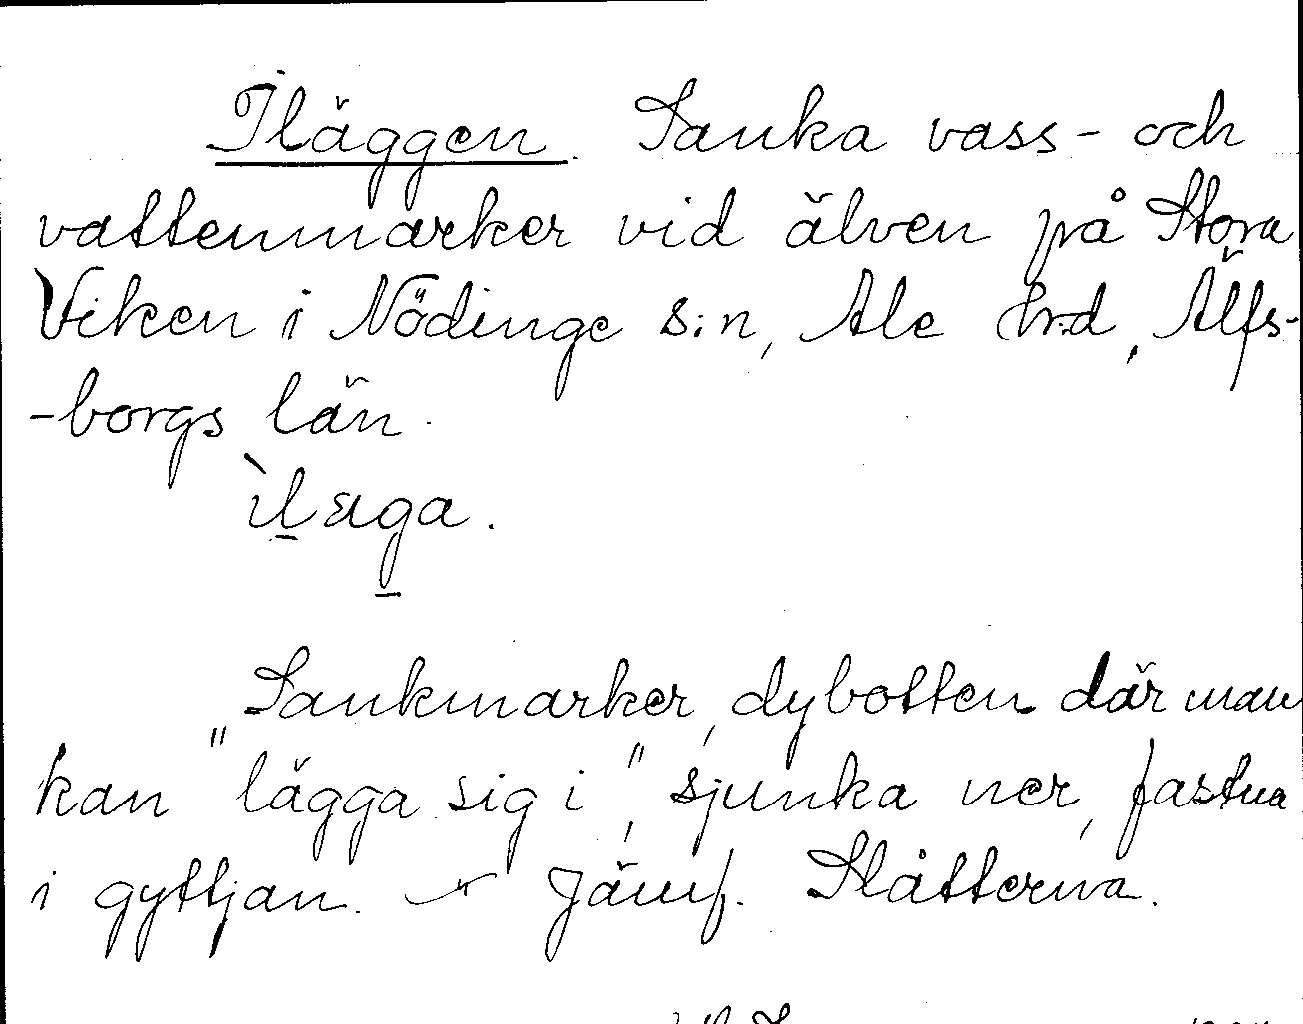 Iläggen. Sanka vass- och
vattenmarker vid älven på Stora
Viken i Nödinge s:n, Ale hrd, Älfs-
-borgs län.
ìlæga.
Sankmarker, dybotten där man
kan "lägga sig i", sjunka ner, fastna
i gyttjan. Jämf. Slåtterna.